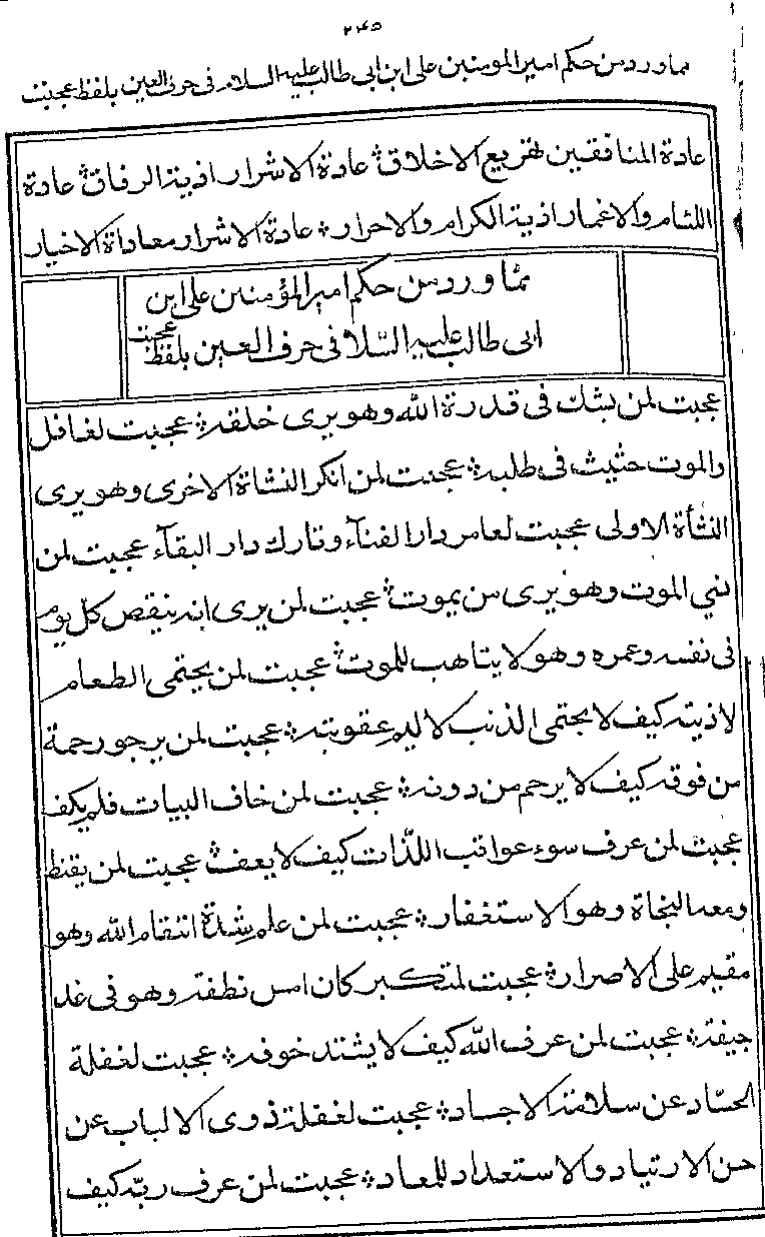 ٢٤٥
مما ورد من حكم امير المومنين على ابن ابى طالب عليه السلام فى حرف العين بلفظ عجبت
عادة المنافقين تهزيع الاخلاق عادة الاشرار اذية الرفاق عادة
اللئام والاغمار اذية الكرام والاحرار عادة الاشرار معاداة الاخيار
مما ورد من حكم امير المؤمنين على ابن
ابى طالب عليه السلا فى حرف العين بلفظ عجبت
عجبت لمن يشك فى قدرة الله وهو يرى خلقه عجبت لغافل
والموت حثيث فى طلبه عجبت لمن انكر النشاة الاخرى وهو يرى
النشأة الاولى عجبت لعامر دار الفنآء وتارك دار البقآء عجبت لمن
نسي الموت وهو يرى من يموت عجبت لمن يرى انه ينقص كل يوم
فى نفسه وعمره وهو لا يتاهب للموت عجبت لمن يحتمى الطعام
لاذيته كيف لا يحتمى الذنب لاليم عقوبته عجبت لمن يرجو رحمة
من فوقه كيف لا يرحم من دونه عجبت لمن خاف البيات فلم يكف
عجبت لمن عرف سوء عواقب اللذات كيف لا يعف عجبت لمن يقنط
ومعه النجاة وهو الاستغفار عجبت لمن علم شدة انتقام الله وهو
مقيم على الاصرار عجبت لمتكبر كان امس نطفة وهو فى غد
جيفة عجبت لمن عرف الله كيف لا يشتد خوفه عجبت لغفلة
الحساد عن سلامة الاجساد عجبت لغفلة ذوى الالباب عن
حسن الارتياد والاستعداد للمعاد عجبت لمن عرف ربه كيف